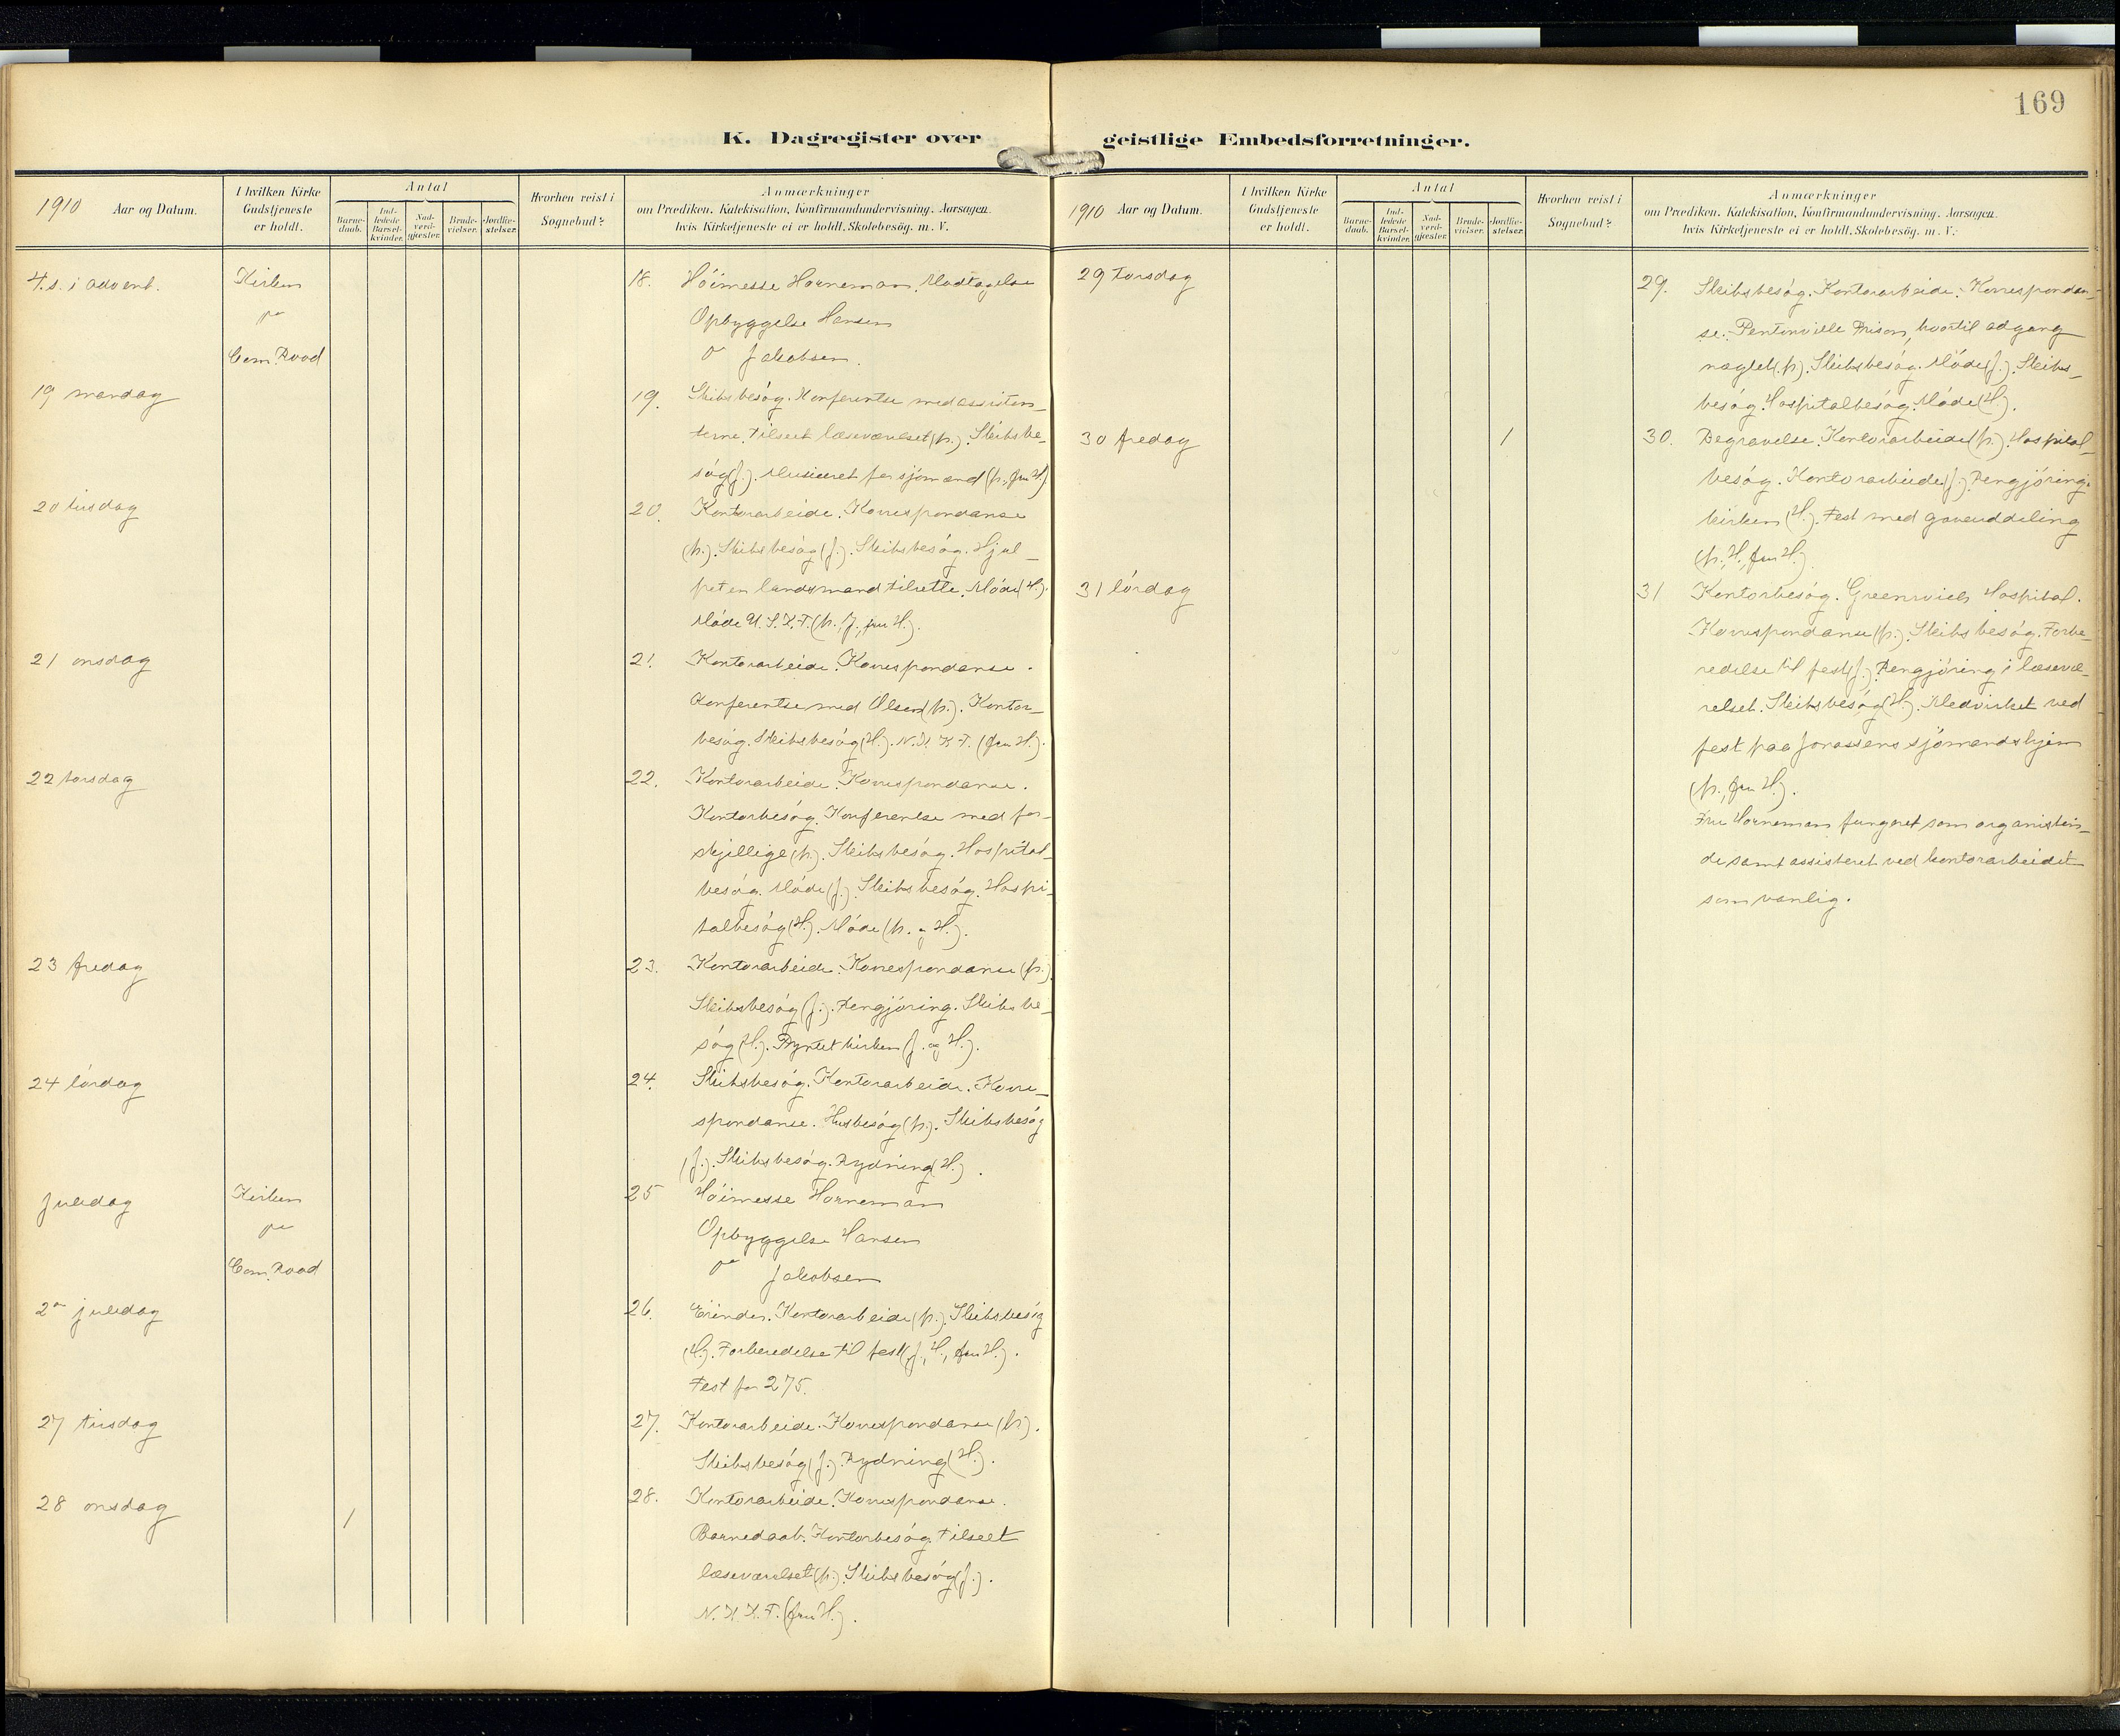 169
K. Dagregister over geistlige Embedsforretninger.
1910 Aar og Datum.
I hvilken Kirke Gudstjeneste er holdt.
Antal
Barne-daab.
Ind-ledede Barsel-kvinder.
Nad-verd-gjæster.
Brude-vielser.
Jordfæ-stelser.
Hvorhen reist i Sognebud?
Anmærkninger
om Prædiken. Katekisation, Konfirmandundervisning. Aarsagen.
hvis Kirketjeneste ei er holdt. Skolebesøg. m. V.
4. s. i advent.
Kirken
Com. Road
18. Höimesse Horneman. Modtagelse
Opbyggelse Hansen
Jakobsen.
19 mandag
19. Skibsbesög. Konferentse med assisten-
terne. Tilseet læseværelset (h.). Skibsbe-
sög (J.). Musiceret for sjömænd (h., fru H.)
20 tirsdag
20. Kontorarbeide. Korrespondanse
(h.). Skibsbesög (J.). Skibsbesög. Hjul-
pet en landsmand tilrette. Möde (H.).
Möde U.S.K.F. (h., J., fru H.).
21 onsdag
21. Kontorarbeide. Korrespondanse.
Konferentse med Olsen (h.). Kontor-
besög. Skibsbesög (H.). N.U.K.F. (fru H.).
22 torsdag
22. Kontorarbeide. Korrespondanse.
Kontorbesög. Konferentse med for-
skjellige (h.). Skibsbesög. Hospital-
besög. Möde (J.). Skibsbesög. Hospi-
talbesög (H.). Möde (h. og H.).
23 fredag
23. Kontorarbeide. Korrespondanse (h.)
Skibsbesög (J.). Rengjöring. Skibsbe-
sög (H.). Pyntet kirken (J. og H.).
24 lördag
24. Skibsbesög. Kontorarbeide. Korre-
spondanse. Husbesög (h.). Skibsbesög
(J.). Skibsbesög. Rydning (H.).
Juledag
Kirken
Com. Road
25 Höimesse Horneman
Opbyggelse Hansen
Jakobsen
2den juledag
26. Erinder. Kontorarbeide (h.). Skibsbesög
(H.). Forberedelse til fest (J., H., fru H.).
Fest for 275.
27 tirsdag
27. Kontorarbeide. Korrespondanse (h.).
Skibsbesög (J.). Rydning (H.).
28 onsdag
1
28. Kontorarbeide. Korrespondanse.
Barnedaab. Kontorbesög. Tilseet
læseværelset (h.). Skibsbesög (J.).
N.U.K.F. (fru H.).
1910 Aar og Datum.
I hvilken Kirke Gudstjeneste er holdt.
Antal
Barne-daab.
Ind-ledede Barsel-kvinder.
Nad-verd-gjæster.
Brude-vielser.
Jordfæ-stelser.
Hvorhen reist i Sognebud?
Anmærkninger
om Prædiken. Katekisation, Konfirmandundervisning. Aarsagen.
hvis Kirketjeneste ei er holdt. Skolebesøg. m. V.
29 Torsdag
29. Skibsbesög. Kontorarbeide. Korrespondan-
se. Pentonville Prison, hvortil adgang
nægtet (h.). Skibsbesög. Möde (J.). Skibs-
besög. Hospitalbesög. Möde (H.).
30 fredag
1
30. Begravelse. Kontorarbeide (h.). Hospital-
besög. Kontorarbeide (J.). Rengjöring i
kirken (H.). Fest med gaveuddeling
(h., H., fru H.).
31 lördag
31 Kontorbesög. Greenwich Hospital.
Korrespondanse (h.). Skibsbesög. Forbe-
redelse til fest (J.). Rengjöring i læsevæ-
relset. Skibsbesög (H.). Medvirket ved
fest paa Jonassens sjömandshjem
(h., fru H.).
Fru Horneman fungeret som organistin-
de samt assisteret ved kontorarbeidet
som vanlig.